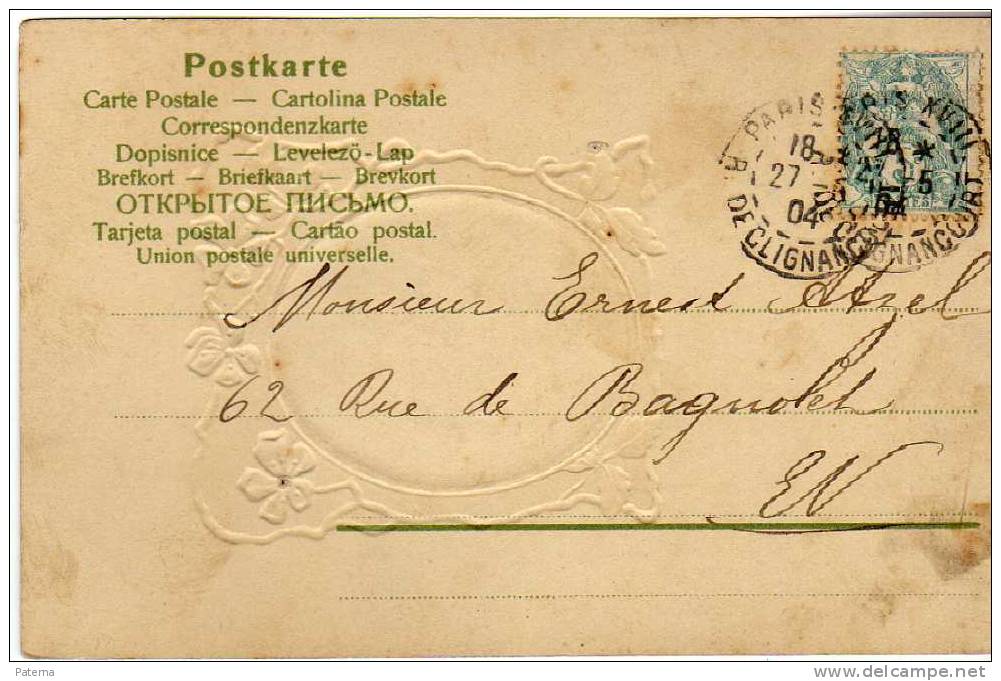 Postkarte
Carte Postale — Cartolina Postale
Correspondenzkarte
Dopisnice — Levelezö-Lap
Brefkort — Briefkaart — Brevkort
ОТКРЫТОЕ ПИСЬМО.
Tarjeta postal — Cartão postal.
Union postale universelle.
PARIS XVIII
18
27 -5
04
R. DE CLIGNANCOURT
Monsieur Ernest
62 Rue de Bagnolet
EV
Paterna
www.delcampe.net